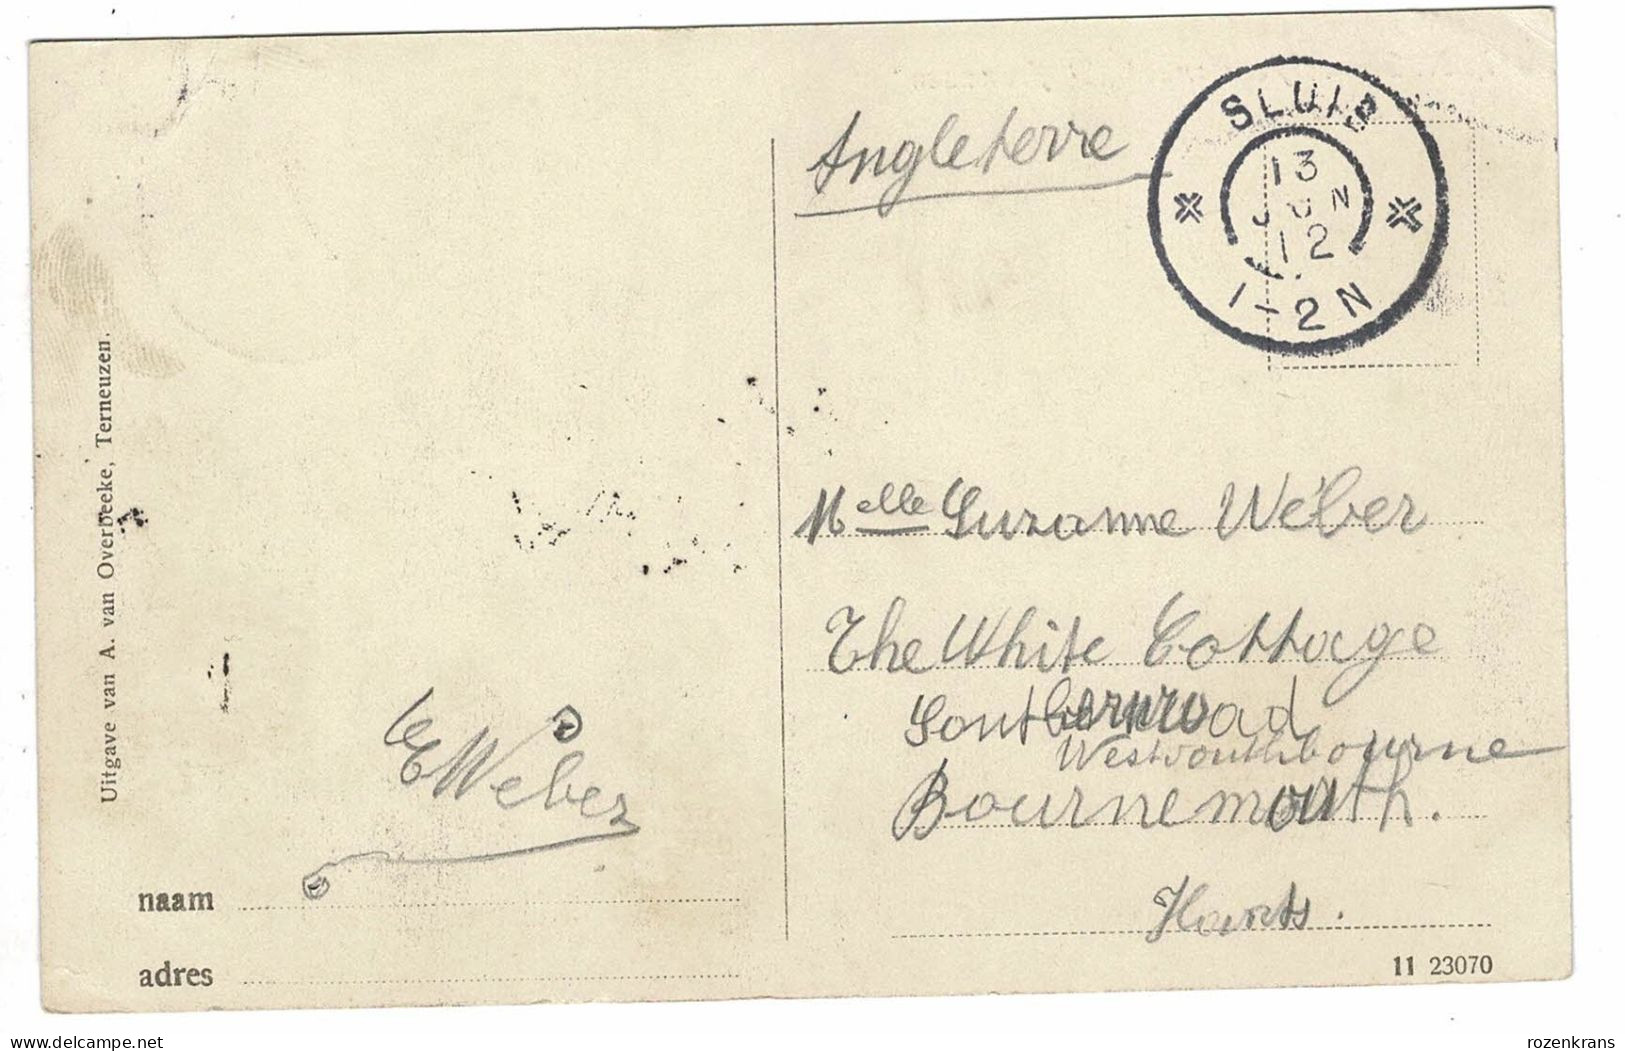 Angleterre
SLUIS
13
JUN
12
1-2N
Uitgave van A. van Overbeeke, Terneuzen.
Melle Suzanne Wéber
The White Cottage
Southernroad
Westsouthbourne
Bournemouth.
Hants.
E Weber
naam
adres
11 23070
delcampe.net
rozenkrans